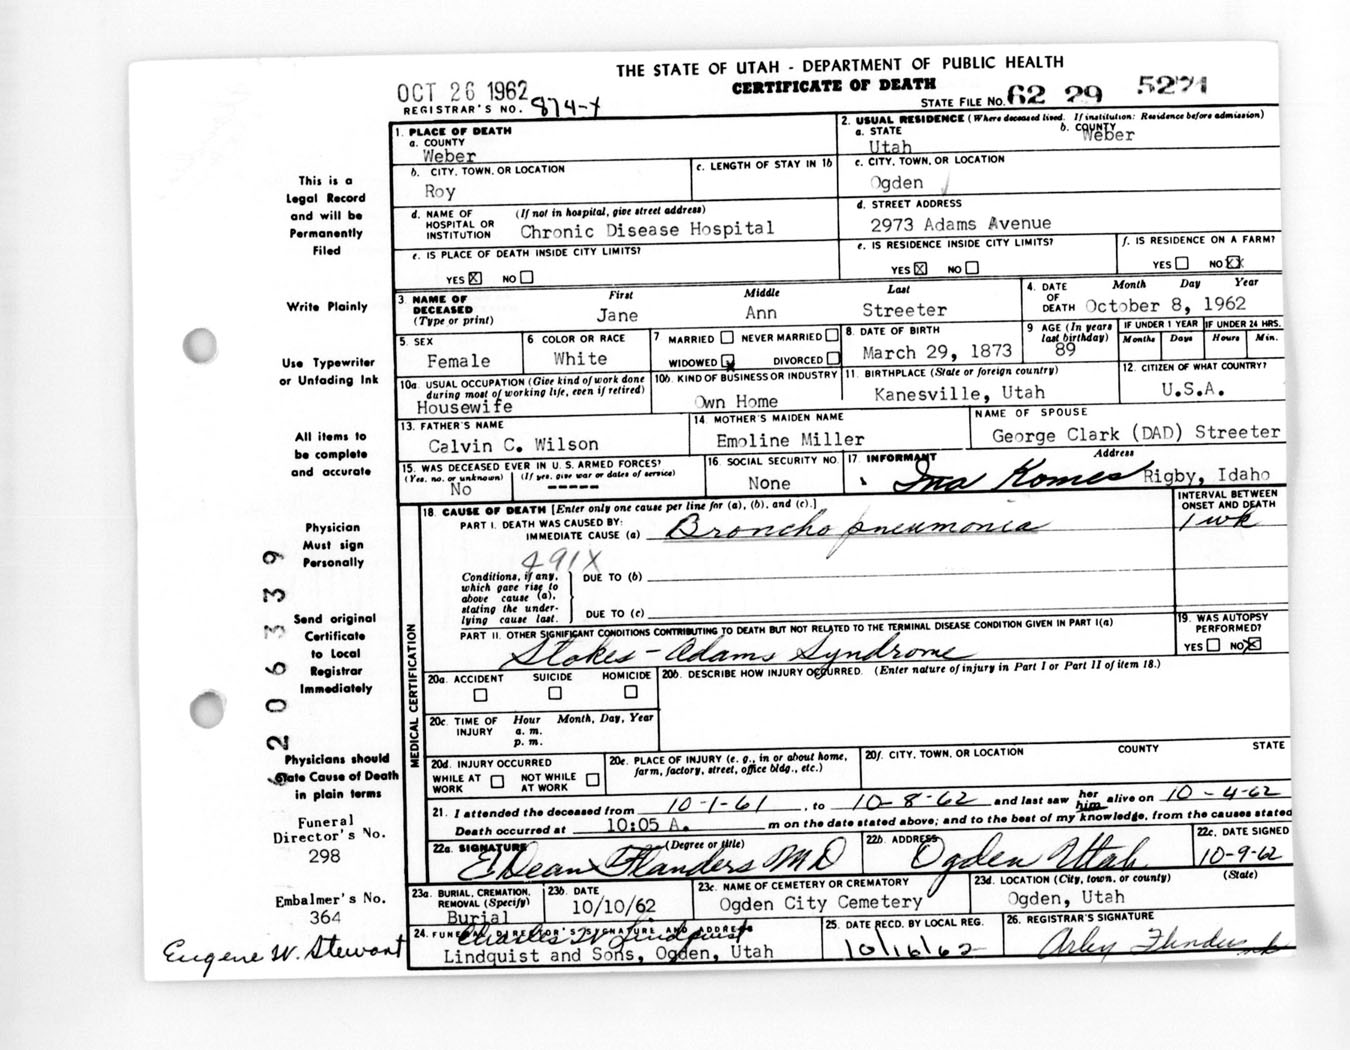 THE STATE OF UTAH - DEPARTMENT OF PUBLIC HEALTH
CERTIFICATE OF DEATH
OCT 26 1962
REGISTRAR'S NO. 874-
STATE FILE NO. 62 29 5271
1. PLACE OF DEATH
a. COUNTY
Weber
2. USUAL RESIDENCE (Where deceased lived. If institution: Residence before admission)
a. STATE
Utah
b. COUNTY
Weber
b. CITY, TOWN, OR LOCATION
Roy
c. LENGTH OF STAY IN 1b
c. CITY, TOWN, OR LOCATION
Ogden
d. NAME OF HOSPITAL OR INSTITUTION (If not in hospital, give street address)
Chronic Disease Hospital
d. STREET ADDRESS
2973 Adams Avenue
e. IS PLACE OF DEATH INSIDE CITY LIMITS?
YES ☒ NO ☐
e. IS RESIDENCE INSIDE CITY LIMITS?
YES ☒ NO ☐
f. IS RESIDENCE ON A FARM?
YES ☐ NO ☒
3. NAME OF DECEASED (Type or print)
First Middle Last
Jane Ann Streeter
4. DATE OF DEATH Month Day Year
October 8, 1962
5. SEX
Female
6 COLOR OR RACE
White
7 MARRIED ☐ NEVER MARRIED ☐
WIDOWED ☒ DIVORCED ☐
8. DATE OF BIRTH
March 29, 1873
9 AGE (In years last birthday)
89
IF UNDER 1 YEAR
Months Days
IF UNDER 24 HRS.
Hours Min.
10a. USUAL OCCUPATION (Give kind of work done during most of working life, even if retired)
Housewife
10b. KIND OF BUSINESS OR INDUSTRY
Own Home
11. BIRTHPLACE (State or foreign country)
Kanesville, Utah
12. CITIZEN OF WHAT COUNTRY?
U.S.A.
13. FATHER'S NAME
Calvin C. Wilson
14. MOTHER'S MAIDEN NAME
Emoline Miller
NAME OF SPOUSE
George Clark (DAD) Streeter
15. WAS DECEASED EVER IN U.S. ARMED FORCES?
(Yes, no, or unknown) (If yes, give war or dates of service)
No -----
16. SOCIAL SECURITY NO.
None
17. INFORMANT Address
Ina Komes Rigby, Idaho
18. CAUSE OF DEATH [Enter only one cause per line for (a), (b), and (c).]
INTERVAL BETWEEN ONSET AND DEATH
PART I. DEATH WAS CAUSED BY:
IMMEDIATE CAUSE (a) Broncho pneumonia 1 wk
491X
Conditions, if any, which gave rise to above cause (a), stating the underlying cause last.
DUE TO (b)
DUE TO (c)
PART II. OTHER SIGNIFICANT CONDITIONS CONTRIBUTING TO DEATH BUT NOT RELATED TO THE TERMINAL DISEASE CONDITION GIVEN IN PART I(a)
Stokes-Adams Syndrome
19. WAS AUTOPSY PERFORMED?
YES ☐ NO ☒
MEDICAL CERTIFICATION
20a. ACCIDENT SUICIDE HOMICIDE
☐ ☐ ☐
20b. DESCRIBE HOW INJURY OCCURRED. (Enter nature of injury in Part I or Part II of item 18.)
20c. TIME OF INJURY Hour Month, Day, Year
a. m.
p. m.
20d. INJURY OCCURRED
WHILE AT WORK ☐ NOT WHILE AT WORK ☐
20e. PLACE OF INJURY (e. g., in or about home, farm, factory, street, office bldg., etc.)
20f. CITY, TOWN, OR LOCATION COUNTY STATE
21. I attended the deceased from 10-1-61, to 10-8-62 and last saw her him alive on 10-4-62
Death occurred at 10:05 A. m on the date stated above; and to the best of my knowledge, from the causes stated
22a. SIGNATURE (Degree or title)
E Dean Flanders MD
22b. ADDRESS
Ogden Utah
22c. DATE SIGNED
10-9-62
23a. BURIAL, CREMATION, REMOVAL (Specify)
Burial
23b. DATE
10/10/62
23c. NAME OF CEMETERY OR CREMATORY
Ogden City Cemetery
23d. LOCATION (City, town, or county) (State)
Ogden, Utah
24. FUNERAL DIRECTOR'S SIGNATURE AND ADDRESS
Charles W Lindquist
Lindquist and Sons, Ogden, Utah
25. DATE RECD. BY LOCAL REG.
10/16/62
26. REGISTRAR'S SIGNATURE
This is a
Legal Record
and will be
Permanently
Filed
Write Plainly
Use Typewriter
or Unfading Ink
All items to
be complete
and accurate
Physician
Must sign
Personally
Send original
Certificate
to Local
Registrar
Immediately
Physicians should
State Cause of Death
in plain terms
Funeral
Director's No.
298
Embalmer's No.
364
Eugene W. Stewart